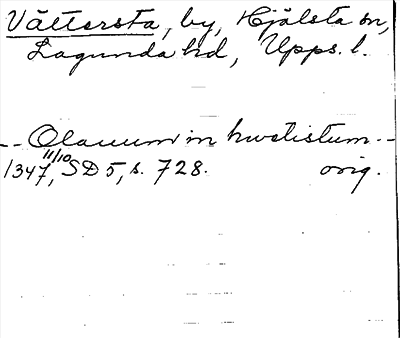 Vättersta, by, Hjälsta sn,
Lagunda hd, Upps. l.
-- Olauum in hwetistum --
1347 11/10, SD 5, s. 728. orig.